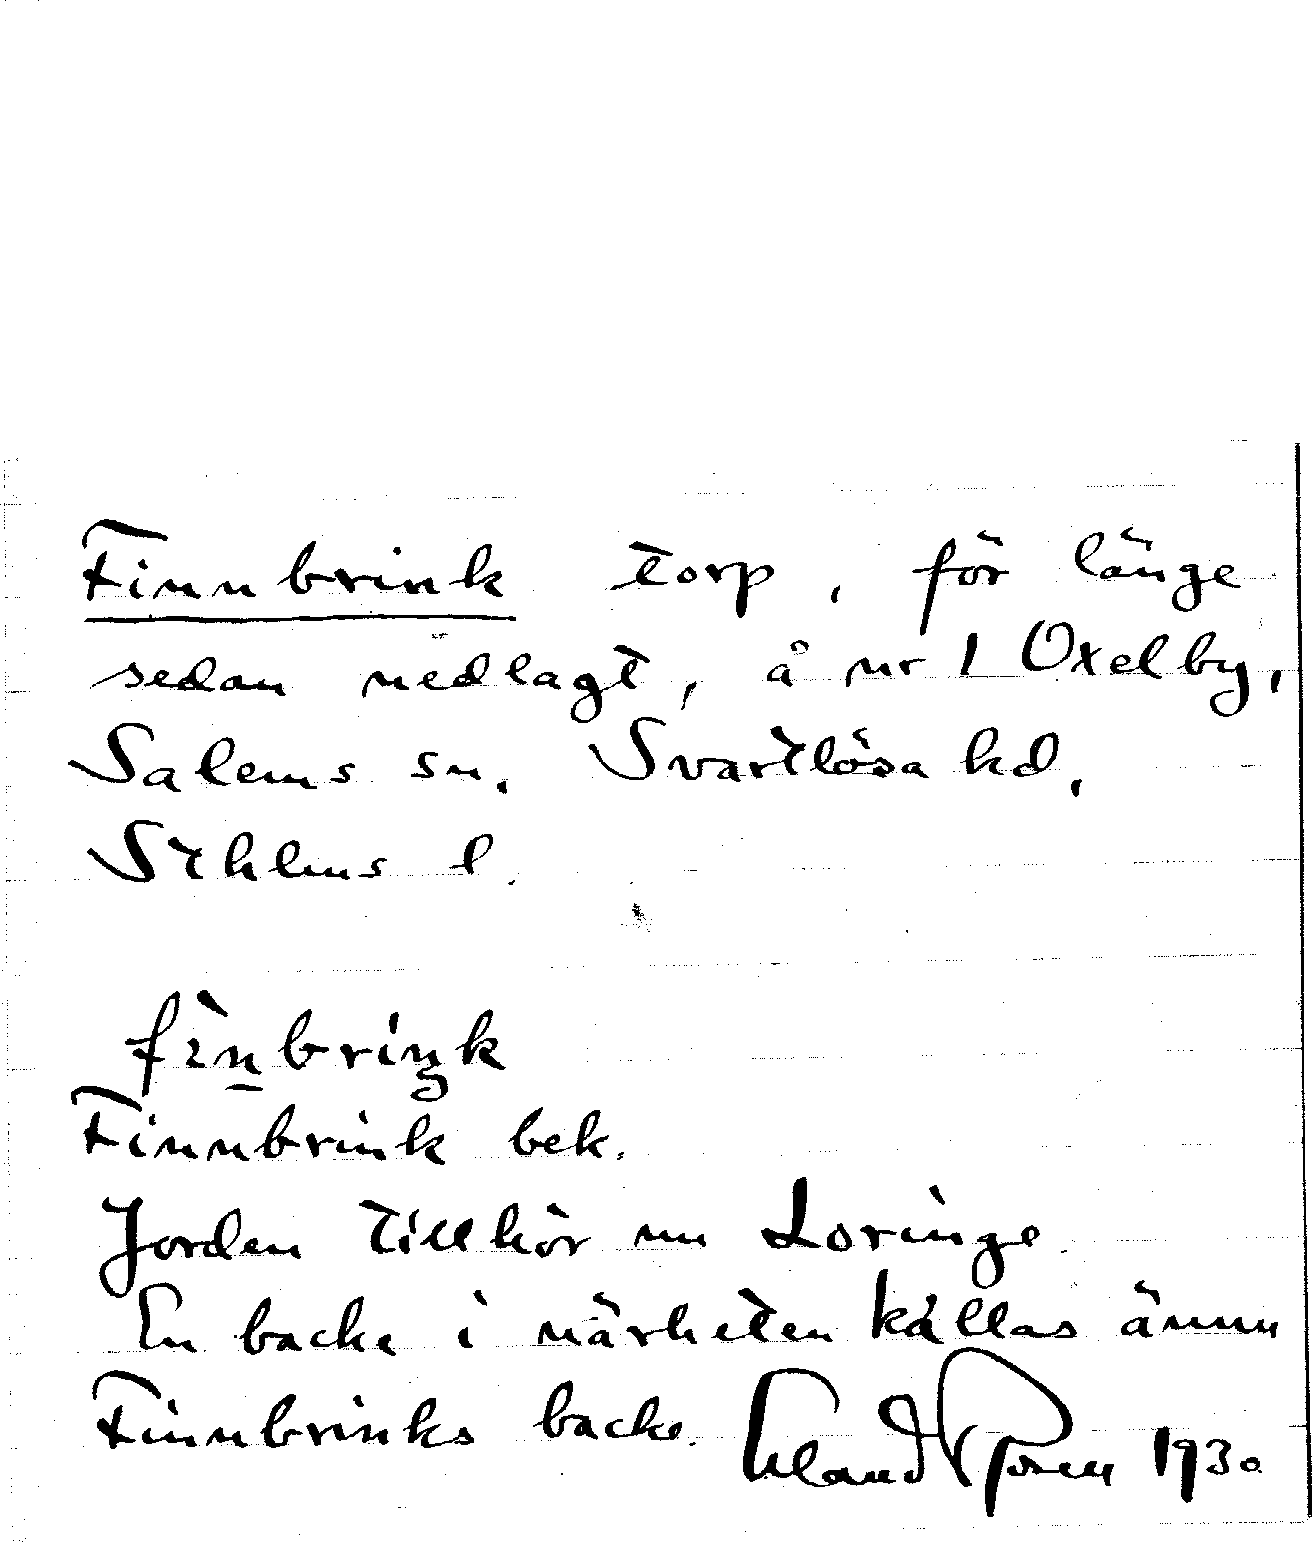 Finnbrink torp, för länge
sedan nedlagt, å nr 1 Oxelby,
Salems sn. Svartlösa hd,
Sthlms l.
Finnbrink bek.
Jorden tillhör nu Loringe.
En backe i närheten kallas ännu
Finnbrinks backe. Erland Rosen 1930